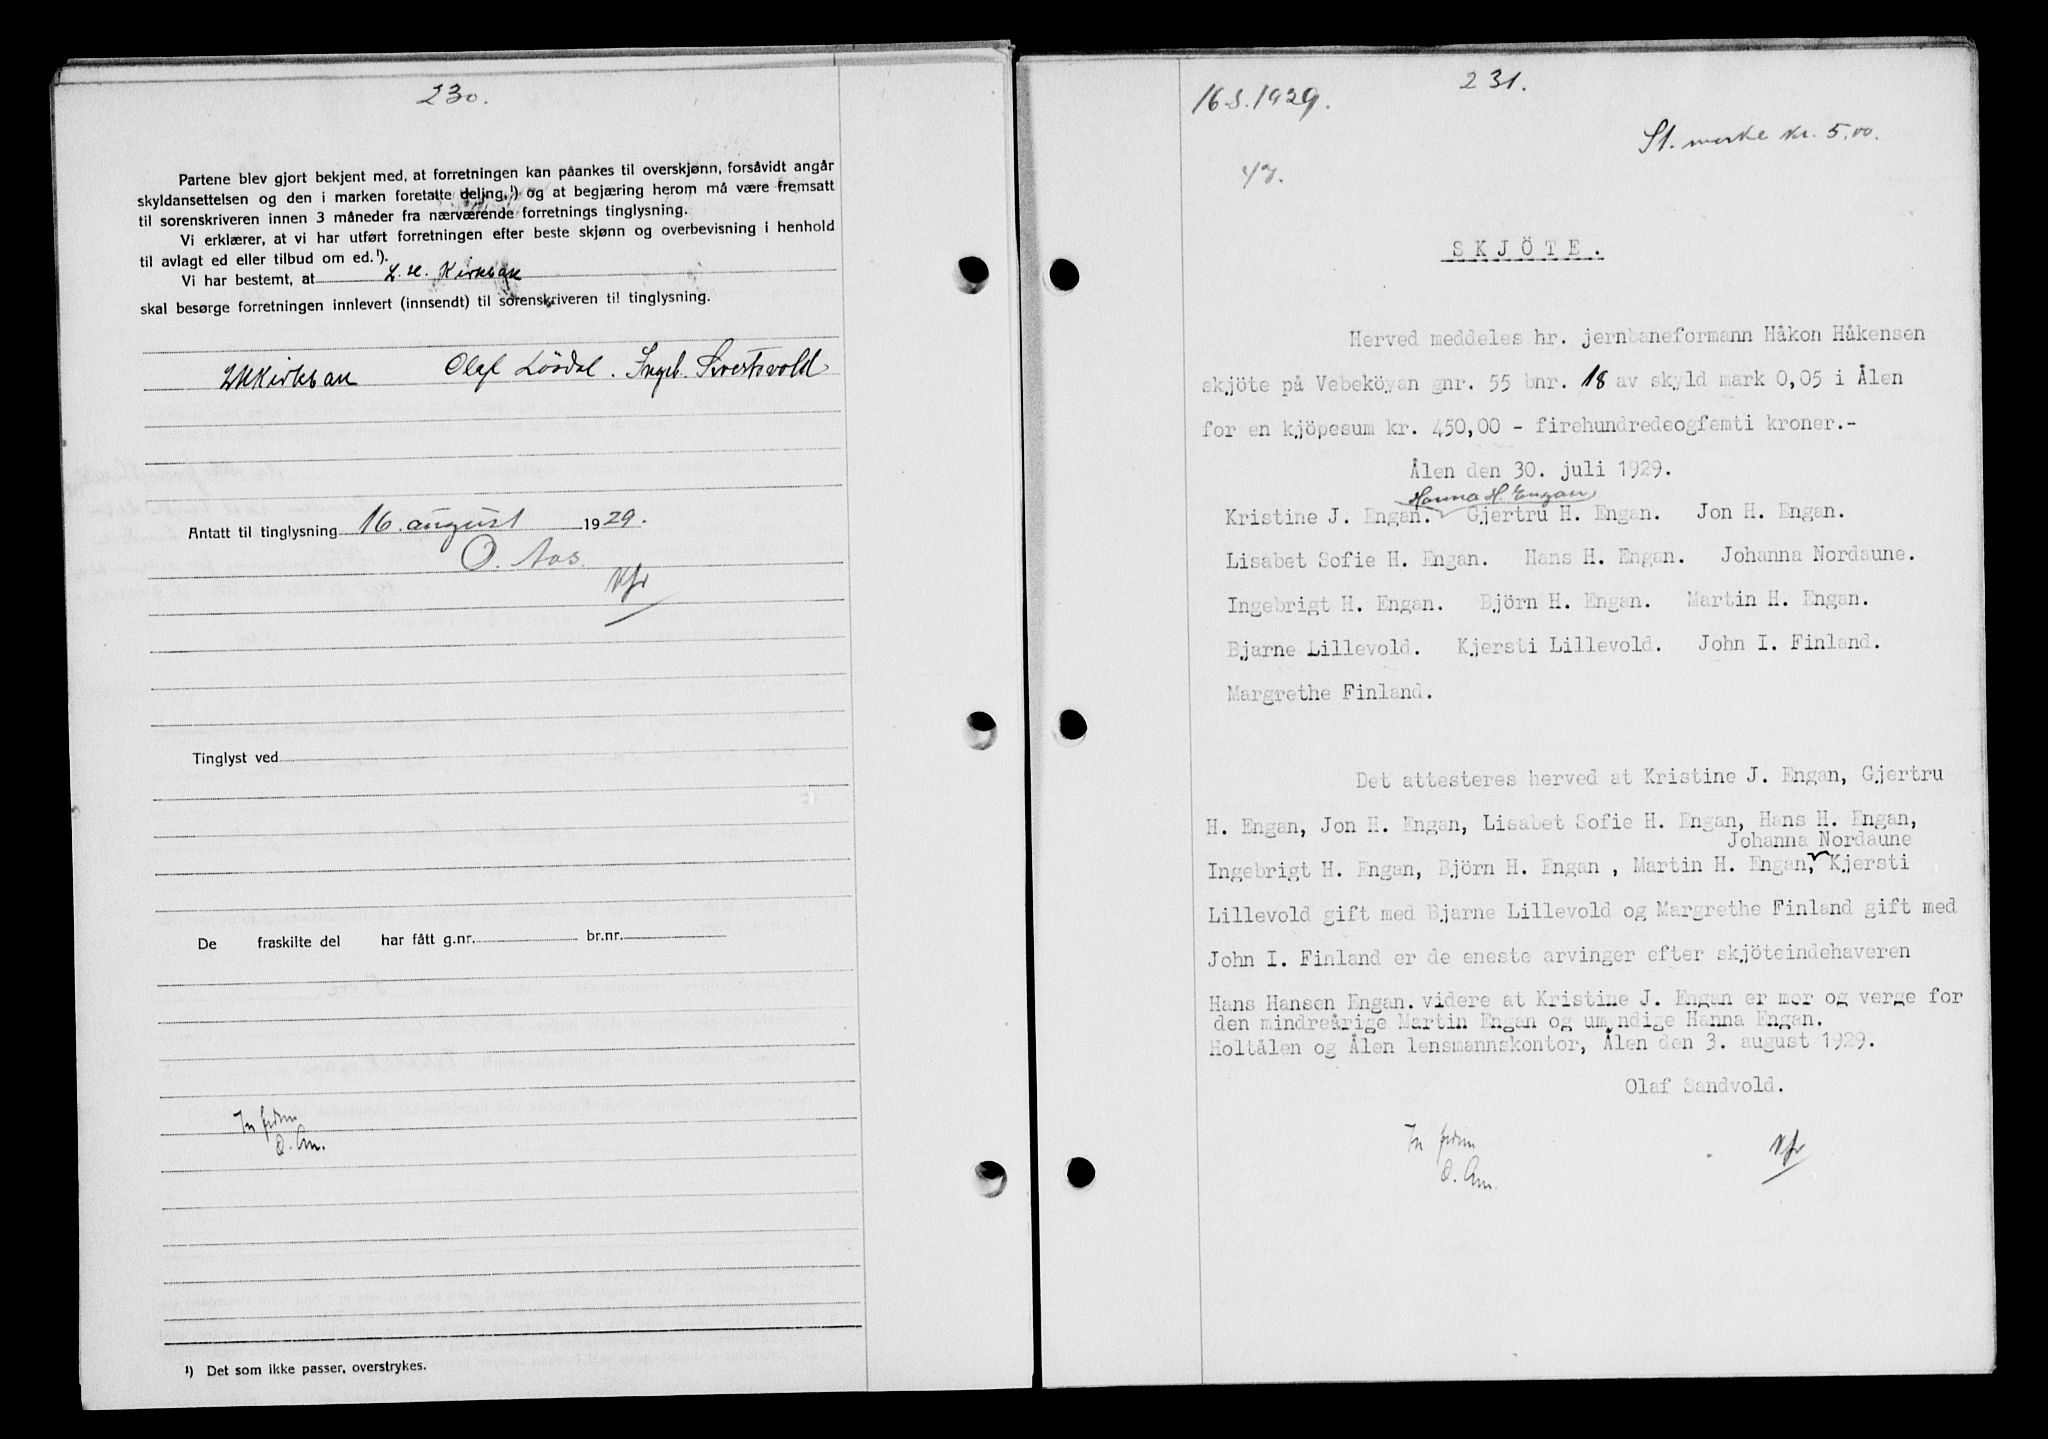 230.
Partene blev gjort bekjent med, at forretningen kan påankes til overskjønn, forsåvidt angår
skyldansettelsen og den i marken foretatte deling,¹) og at begjæring herom må være fremsatt
til sorenskriveren innen 3 måneder fra nærværende forretnings tinglysning.
Vi erklærer, at vi har utført forretningen efter beste skjønn og overbevisning i henhold
til avlagt ed eller tilbud om ed.¹).
Vi har bestemt, at L. H. Kirkbak
skal besørge forretningen innlevert (innsendt) til sorenskriveren til tinglysning.
LHKirkbak Olaf Lösdal. Ingeb. Sivertsvold
Antatt til tinglysning 16. august 1929.
O. Aas.
Tinglyst ved
De fraskilte del har fått g.nr. br.nr.
¹) Det som ikke passer, overstrykes.
231.
16.8.1929.
St. merke kr. 5.00.
47.
SKJÖTE.
Herved meddeles hr. jernbaneformann Håkon Håkensen
skjöte på Vebeköyan gnr. 55 bnr. 18 av skyld mark 0,05 i Ålen
for en kjöpesum kr. 450,00 - firehundredeogfemti kroner.-
Ålen den 30. juli 1929.
Hanna H. Engan
Kristine J. Engan. Gjertru H. Engan. Jon H. Engan.
Lisabet Sofie H. Engan. Hans H. Engan. Johanna Nordaune.
Ingebrigt H. Engan. Björn H. Engan. Martin H. Engan.
Bjarne Lillevold. Kjersti Lillevold. John I. Finland.
Margrethe Finland.
Det attesteres herved at Kristine J. Engan, Gjertru
H. Engan, Jon H. Engan, Lisabet Sofie H. Engan, Hans H. Engan,
Johanna Nordaune
Ingebrigt H. Engan, Björn H. Engan , Martin H. Engan, Kjersti
Lillevold gift med Bjarne Lillevold og Margrethe Finland gift med
John I. Finland er de eneste arvinger efter skjöteindehaveren
Hans Hansen Engan. videre at Kristine J. Engan er mor og verge for
den mindreårige Martin Engan og umyndige Hanna Engan.
Holtålen og Ålen lensmannskontor, Ålen den 3. august 1929.
Olaf Sandvold.